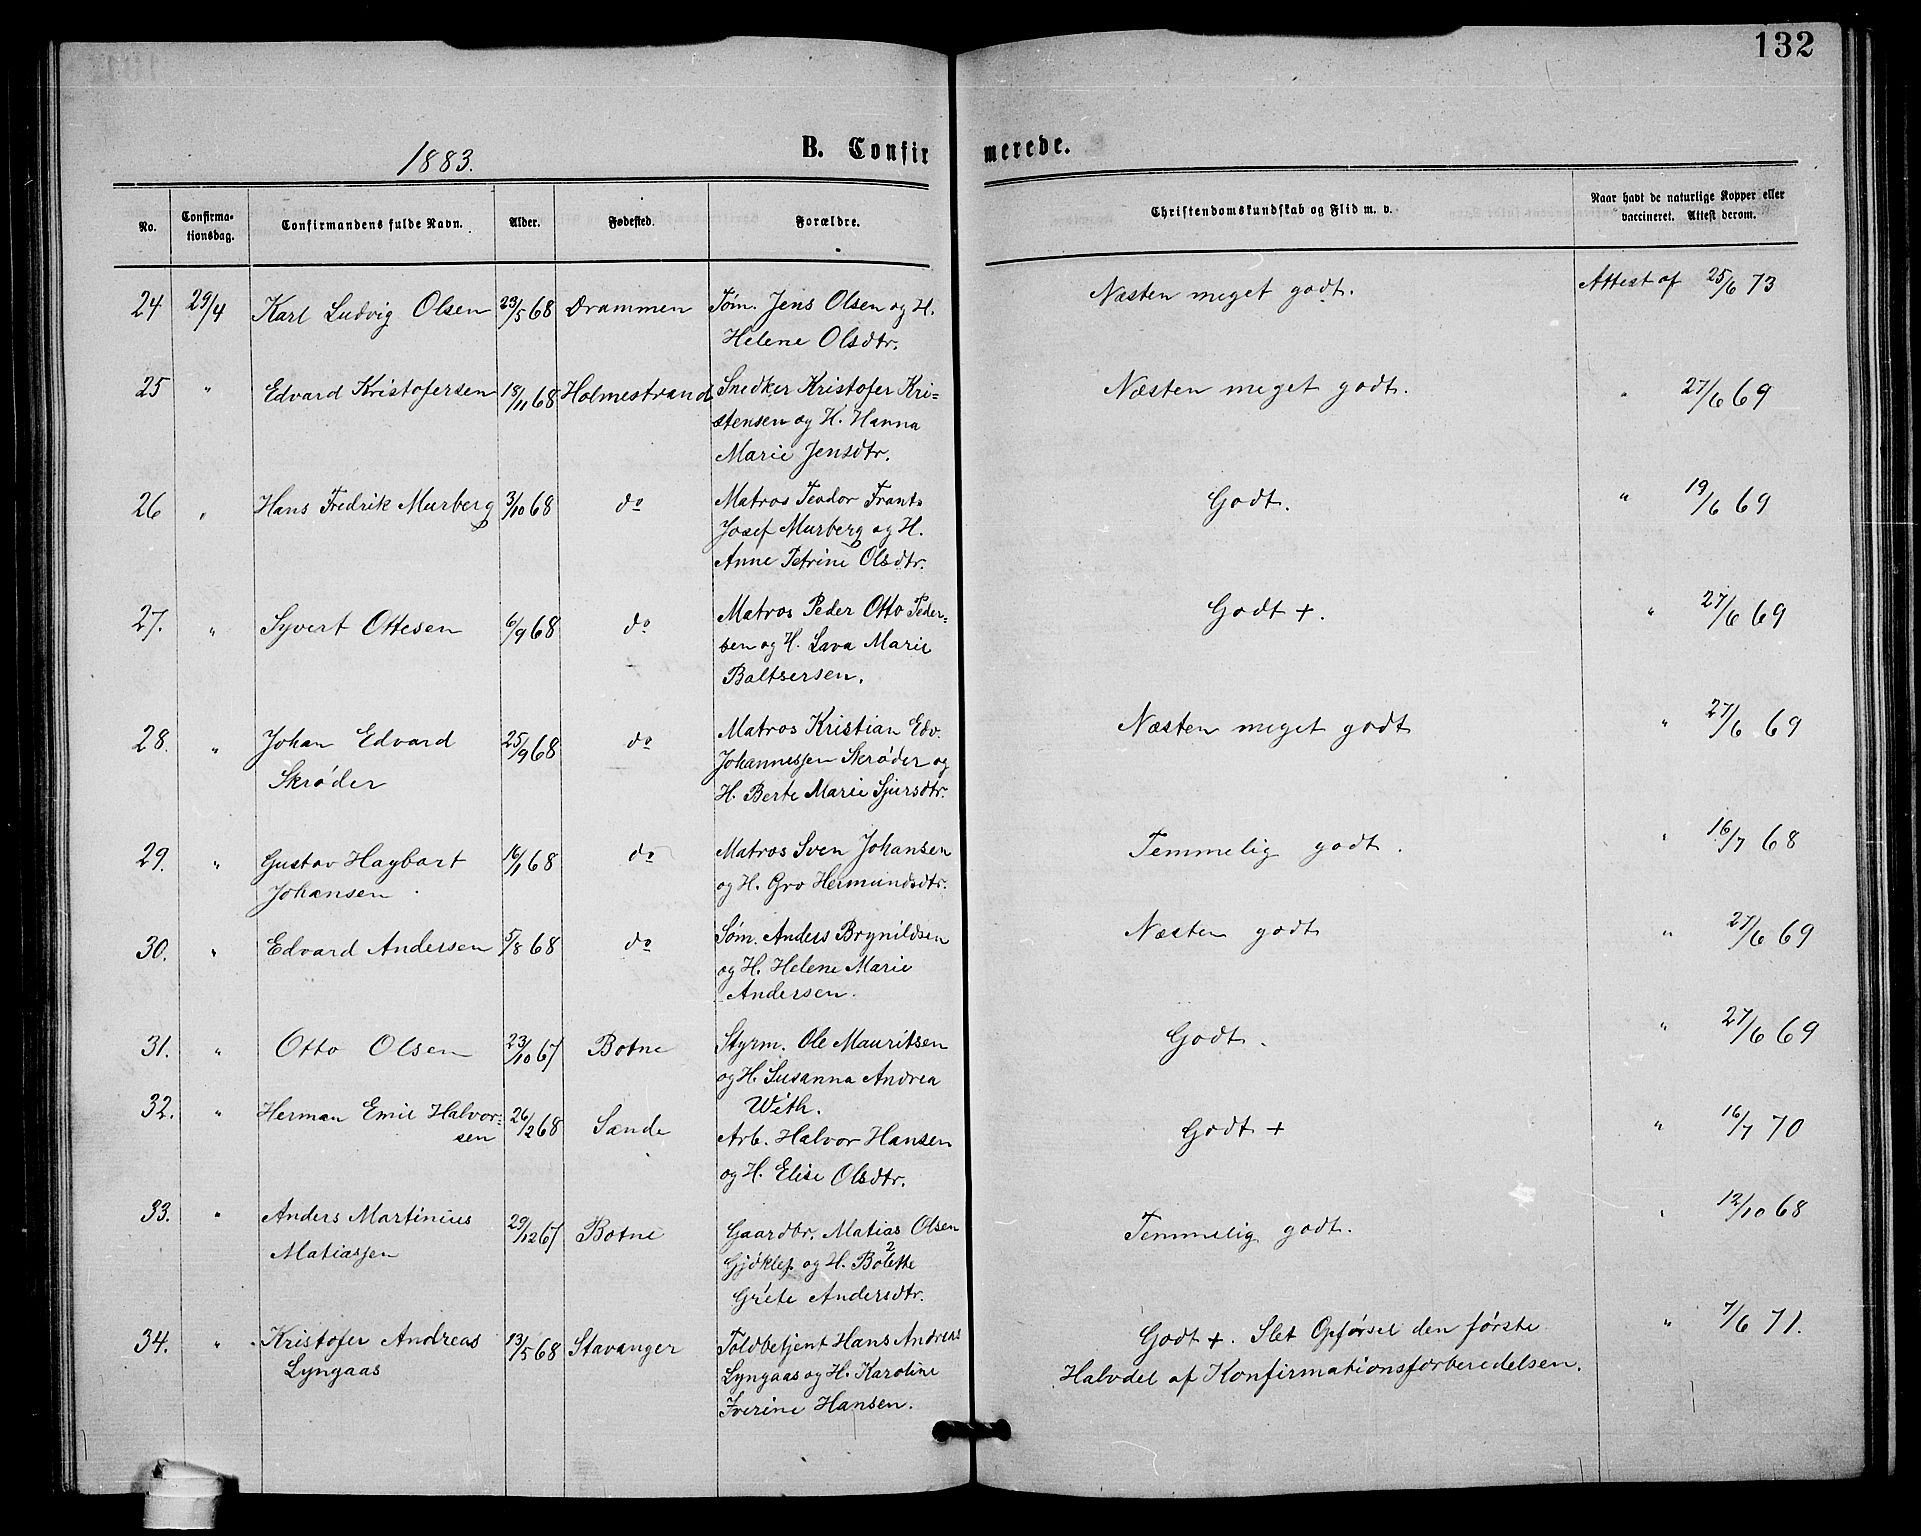 132
1883.
B. Confirmerede.
No.
Confirma-
tionsdag.
Confirmandens fulde Navn.
Alder.
Fødested.
Forældre.
Christendomskundskab og Flid m. v.
Naar havt de naturlige Kopper eller
vaccineret. Attest derom.
24 29/4 Karl Ludvig Olsen 23/5 68 Drammen Tøm. Jens Olsen og H. Næsten meget godt. Attest af 25/6 73
Helene Olsdtr.
25 " Edvard Kristofersen 18/11 68 Holmestrand Snedker Kristofer Kri- Næsten meget godt. " 27/6 69
stensen og H. Hanna
Marie Jensdtr.
26 " Hans Fredrik Murberg 3/10 68 do Matros Teodor Frants Godt. " 19/6 69
Josef Murberg og H.
Anne Petrine Olsdtr.
27. " Syvert Ottesen 6/9 68 do Matros Peder Otto Peder- Godt +. " 27/6 69
sen og H. Lava Marie
Baltsersen.
28. " Johan Edvard 25/9 68 do Matros Kristian Edv. Næsten meget godt " 27/6 69
Skrøder Johannessen Skrøder og
H. Berte Marie Sjursdtr.
29. " Gustav Hagbart 16/1 68 do Matros Sven Johansen Temmelig godt. " 16/7 68
Johansen og H. Gro Hermundsdtr.
30. " Edvard Andersen 5/8 68 do Søm. Anders Brynildsen Næsten godt " 27/6 69
og H. Helene Marie
Andersen.
31. " Otto Olsen 23/10 67 Botne Styrm. Ole Mauritsen Godt. " 27/6 69
og H. Susanna Andrea
With.
32. " Herman Emil Halvor- 26/2 68 Sande Arb. Halvor Hansen Godt + " 16/7 70
sen og H. Elise Olsdtr.
33. " Anders Martinius 29/12 67 Botne Gaardbr. Matias Olsen Temmelig godt. " 12/10 68
Matiassen Gjøklep og H. Bolette
Grete Andersdtr.
34. " Kristofer Andreas 13/5 68 Stavanger Toldbetjent Hans Andreas Godt +. Slet Opførsel den første " 7/6 71.
Lyngaas Lyngaas og H. Karoline Halvdel af Konfirmationsforberedelsen.
Iverine Hansen.